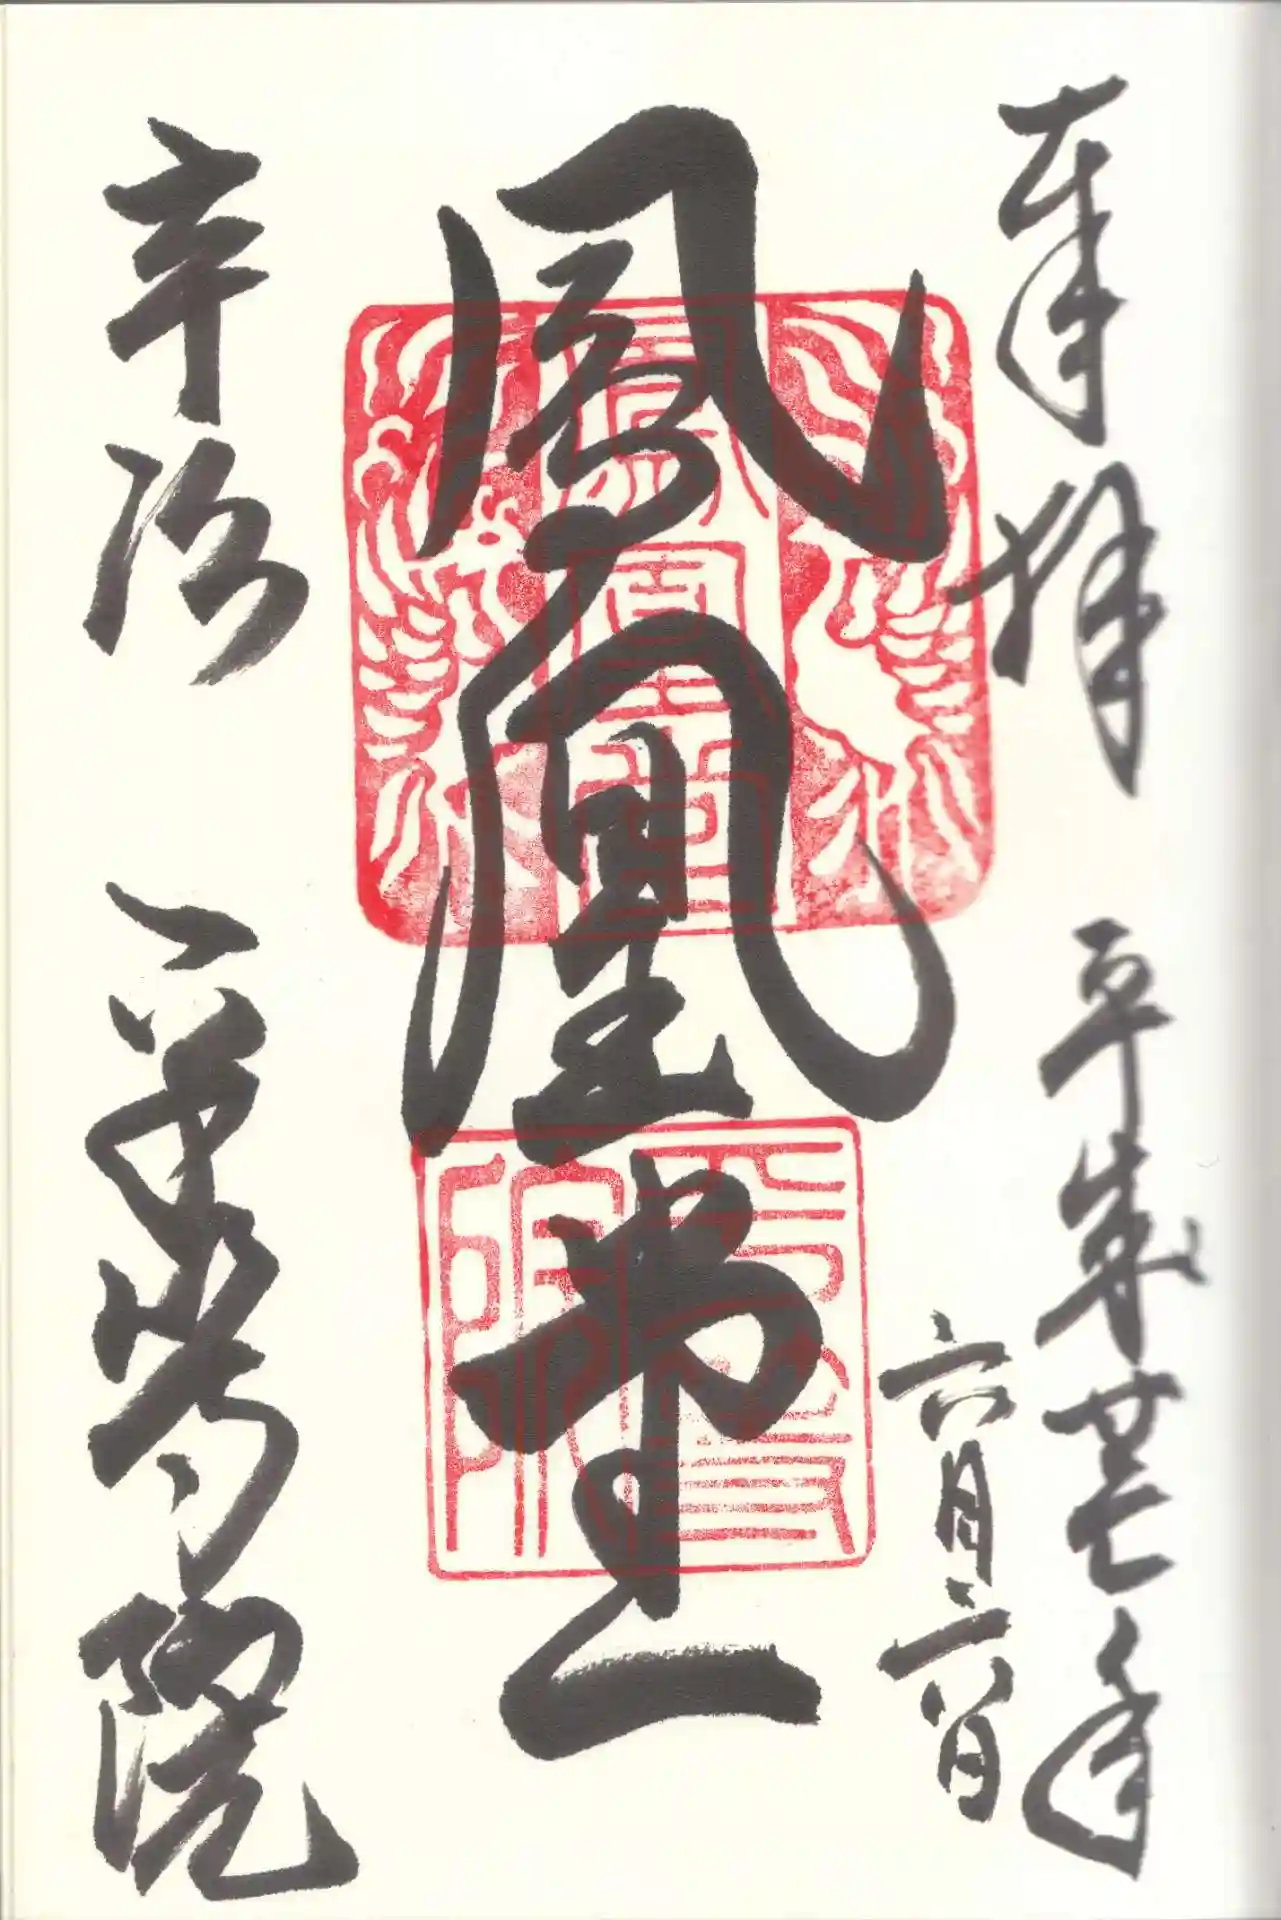 奉拝 平成廿七年
六月二八日
鳳凰堂
宇治 平等院
鳳凰堂
平等院